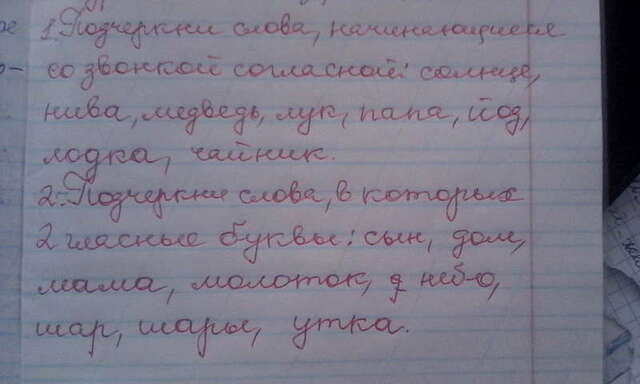 1. Подчеркни слова, начинающиеся
со звонкой согласной: солнце,
нива, медведь, лук, папа, йод,
лодка, чайник.
2. Подчеркни слова, в которых
2 гласные буквы: сын, дом,
мама, молоток, небо,
шар, шары, утка.